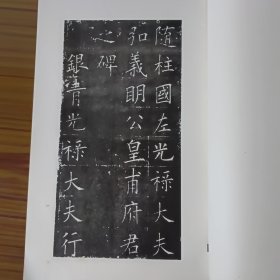 隨柱國左光祿大夫
弘義明公皇甫府君
之碑
銀青光祿大夫行